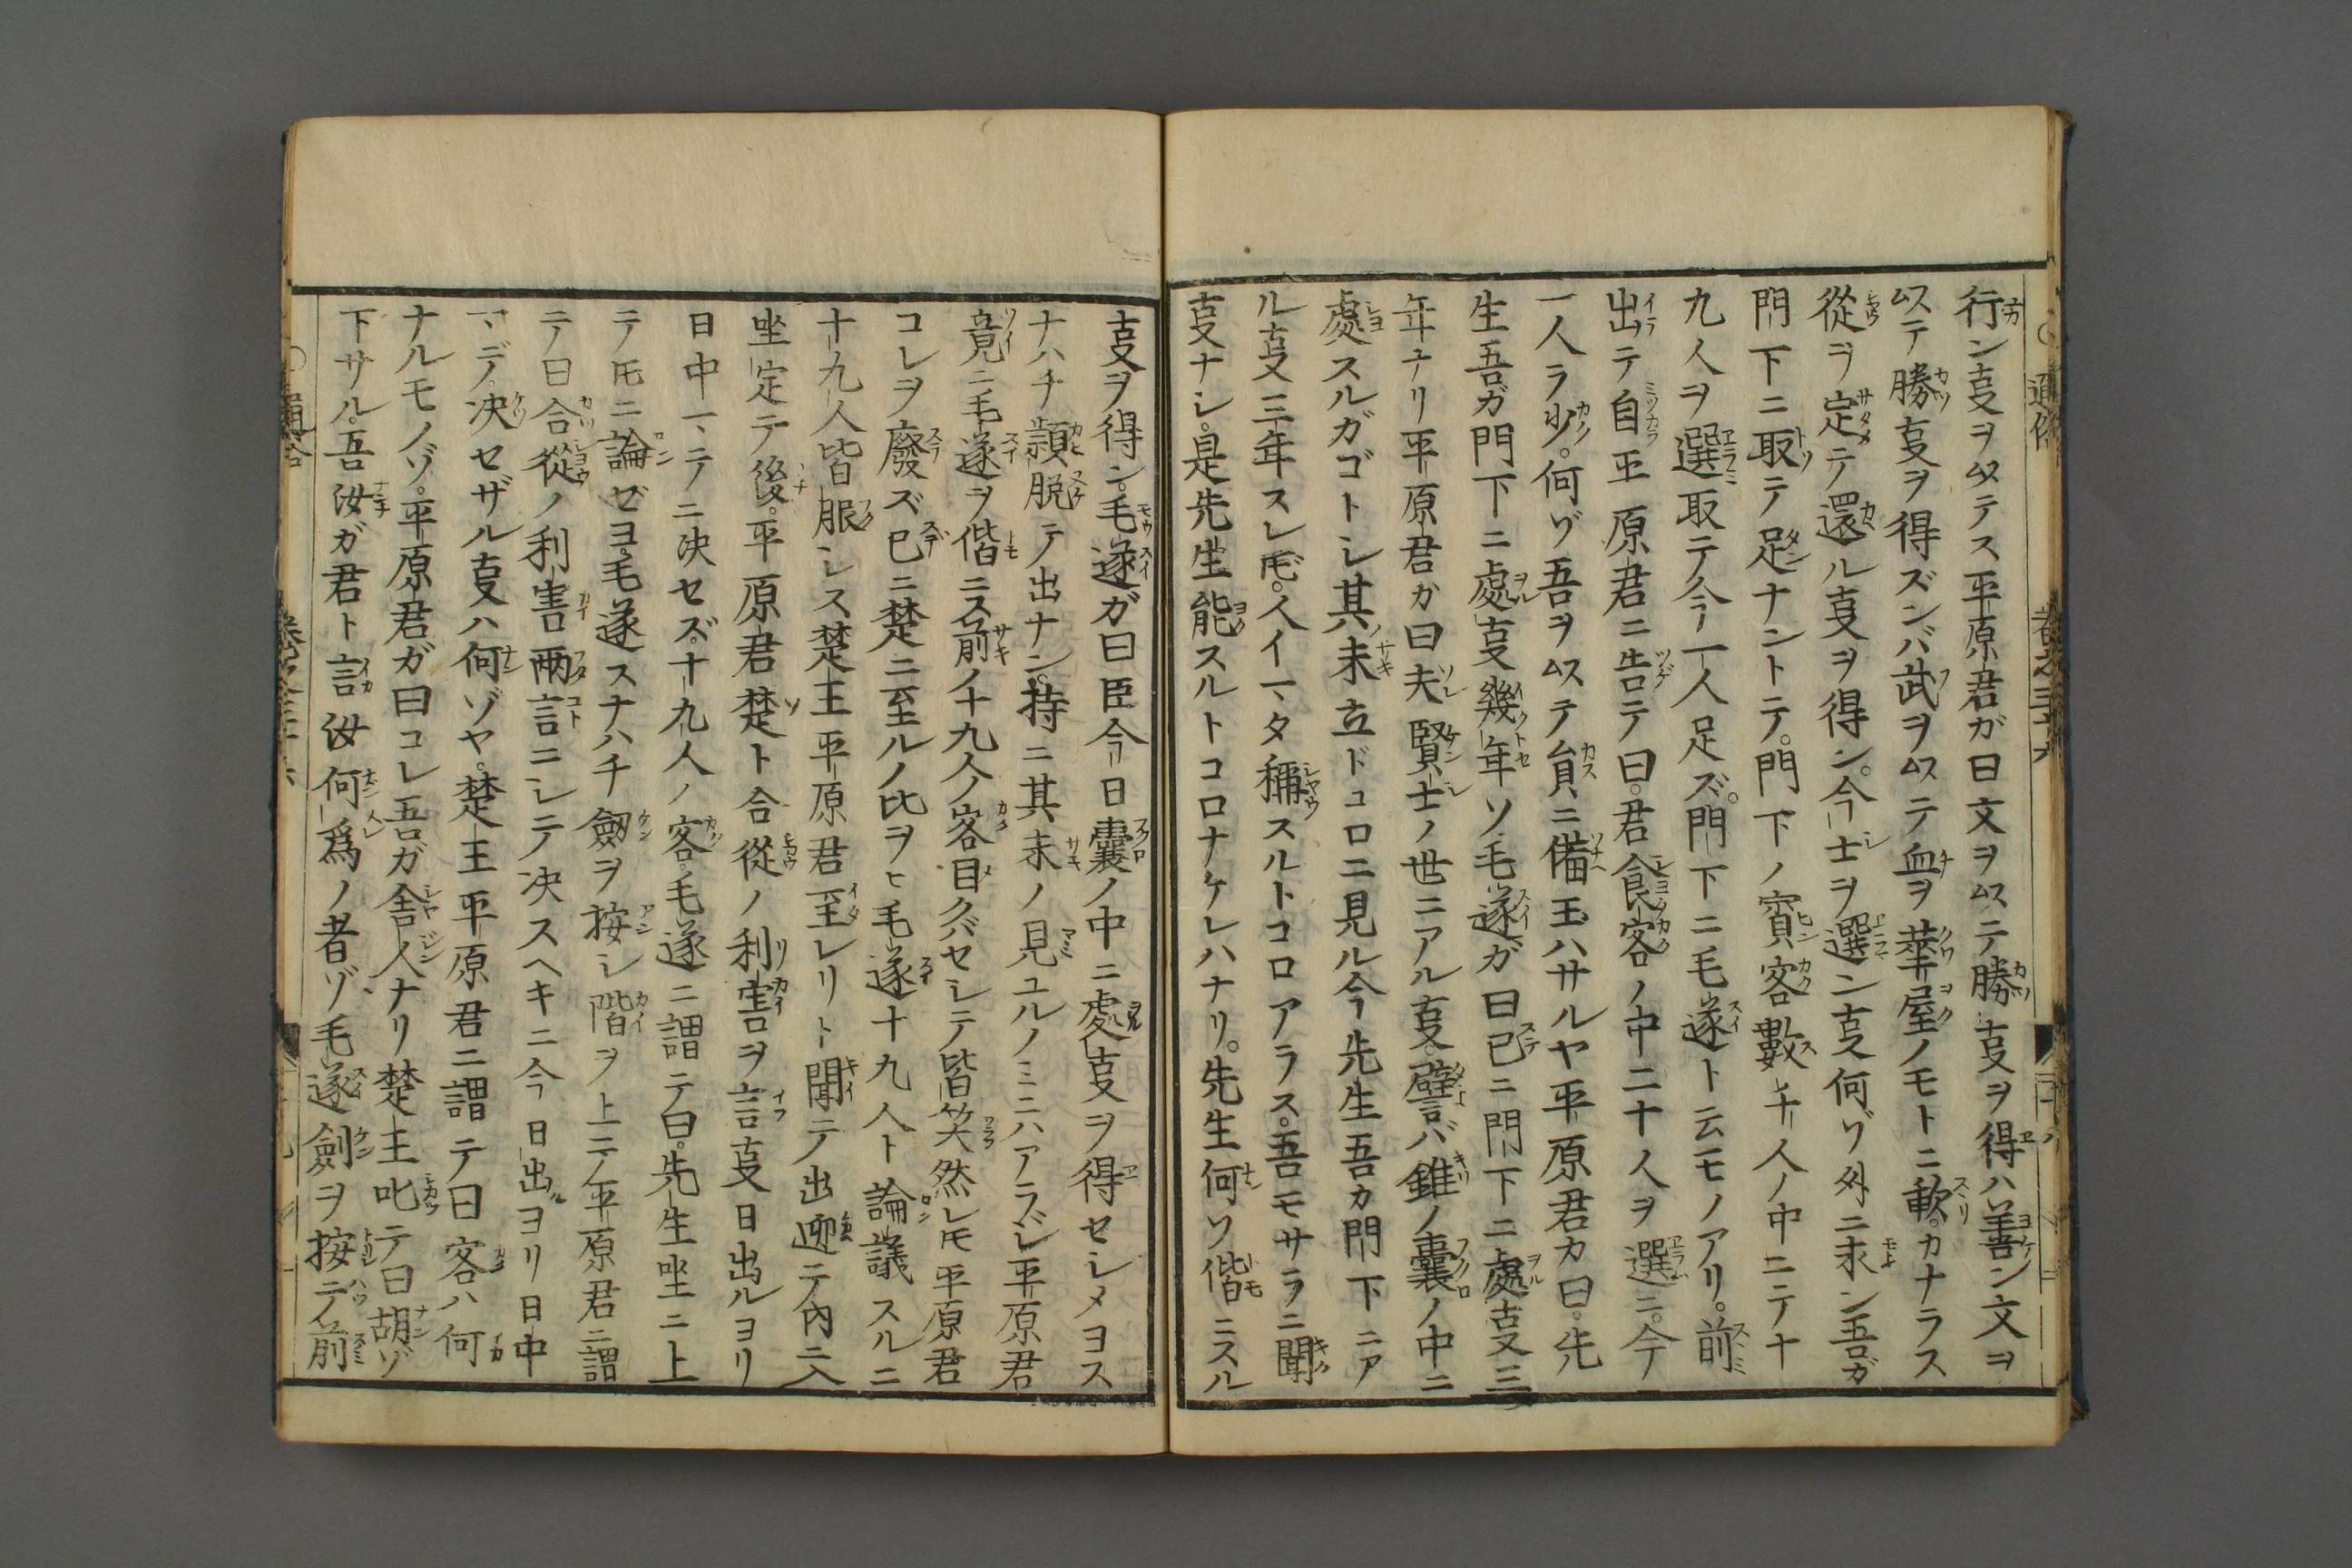 行ン叓ヲ以テス平原君ガ曰文ヲ以テ勝叓ヲ得ハ善ン文ヲ
以テ勝叓ヲ得ズンバ武ヲ以テ血ヲ華屋ノモトニ歃カナラス
從ヲ定テ還ル叓ヲ得ン。今士ヲ選ン叓何ゾ外ニ求ン吾ガ
門下ニ取テ足ナントテ。門下ノ賓客數千人ノ中ニテ十
九人ヲ選取テ今一人足ズ。門下ニ毛遂ト云モノアリ。前
出テ自平原君ニ告テ曰。君食客ノ中二十人ヲ選ニ。今
一人ヲ少。何ゾ吾ヲ以テ貟ニ備玉ハサルヤ平原君カ曰。先
生吾ガ門下ニ處叓幾年ソ毛遂ガ曰已ニ門下ニ處叓三
年ナリ平原君カ曰夫賢士ノ世ニアル叓。譬バ錐ノ嚢ノ中ニ
處スルガゴトシ其末立ドコロニ見ル今先生吾カ門下ニア
ル叓三年スレ𪜈。人イマタ稱スルトコロアラス。吾モサラニ聞
叓ナシ。是先生能スルトコロナケレハナリ。先生何ソ偕ニスル
叓ヲ得ン。毛遂ガ曰臣今日嚢ノ中ニ處叓ヲ得セシメヨス
ナハチ穎脱テ出ナン。持ニ其末ノ見ユルノミニハアラジ平原君
竟ニ毛遂ヲ偕ニス前ノ十九人ノ客目クバセシテ皆笑然レ𪜈平原君
コレヲ廢ズ已ニ楚ニ至ルノ比ヲヒ毛遂十九人ト論議スルニ
十九人皆服シス楚王平原君至レリト聞テ出迎テ內ニ入
坐定テ後。平原君楚ト合從ノ利害ヲ言叓日出ルヨリ
日中マテニ决セズ。十九人ノ客。毛遂ニ謂テ曰。先生坐ニ上
テ𪜈ニ論ゼヨ。毛遂スナハチ劔ヲ按シ階ヲ上テ平原君ニ謂
テ曰合從ノ利害両言ニシテ决スヘキニ今日出ヨリ日中
マデ决セザル叓ハ何ゾヤ。楚王平原君ニ謂テ曰客ハ何
ナルモノゾ。平原君ガ曰コレ吾ガ舎人ナリ楚王叱テ曰胡ゾ
下サル。吾汝ガ君ト言汝何爲ノ者ゾ毛遂劍ヲ按テ前